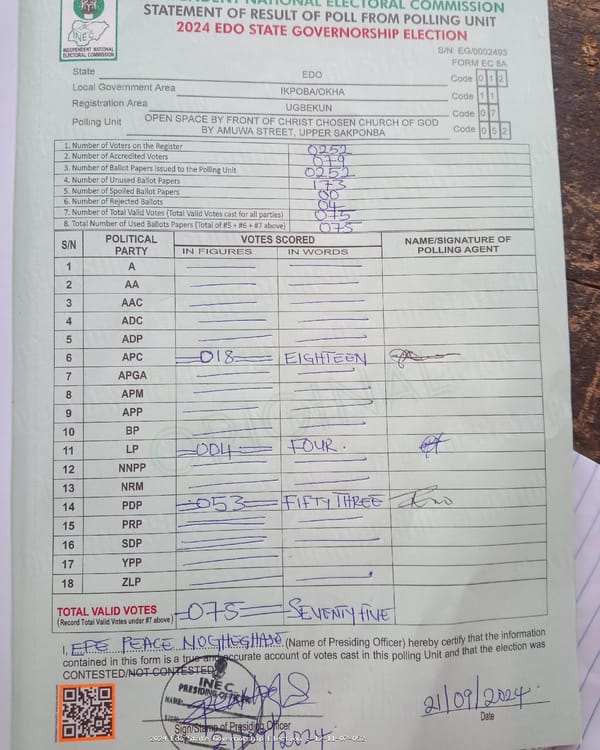 INDEPENDENT NATIONAL ELECTORAL COMMISSION
STATEMENT OF RESULT OF POLL FROM POLLING UNIT
2024 EDO STATE GOVERNORSHIP ELECTION
INEC
INDEPENDENT NATIONAL ELECTORAL COMMISSION
S/N: EG/0002493
FORM EC 8A
State EDO Code 0 1 2
Local Government Area IKPOBA/OKHA Code 1 1
Registration Area UGBEKUN Code 0 7
Polling Unit OPEN SPACE BY FRONT OF CHRIST CHOSEN CHURCH OF GOD Code 0 5 2
BY AMUWA STREET, UPPER SAKPONBA
1. Number of Voters on the Register 0252
2. Number of Accredited Voters 079
3. Number of Ballot Papers Issued to the Polling Unit 0252
4. Number of Unused Ballot Papers 173
5. Number of Spoiled Ballot Papers 00
6. Number of Rejected Ballots 04
7. Number of Total Valid Votes (Total Valid Votes cast for all parties) 075
8. Total Number of Used Ballots Papers (Total of #5 + #6 + #7 above) 075
S/N POLITICAL PARTY VOTES SCORED NAME/SIGNATURE OF POLLING AGENT
IN FIGURES IN WORDS
1 A
2 AA
3 AAC
4 ADC
5 ADP
6 APC 018 EIGHTEEN
7 APGA
8 APM
9 APP
10 BP
11 LP 004 FOUR.
12 NNPP
13 NRM
14 PDP 053 FIFTY THREE
15 PRP
16 SDP
17 YPP
18 ZLP
ORIGINAL
TOTAL VALID VOTES 075 SEVENTY FIVE
(Record Total Valid Votes under #7 above)
I, EPE PEACE (Name of Presiding Officer) hereby certify that the information
contained in this form is a true and accurate account of votes cast in this polling Unit and that the election was
CONTESTED/NOT CONTESTED
INEC
PRESIDING OFFICER
NAME:
SIGN:
21/09/2024
Sign/Stamp of Presiding Officer
Date
2024